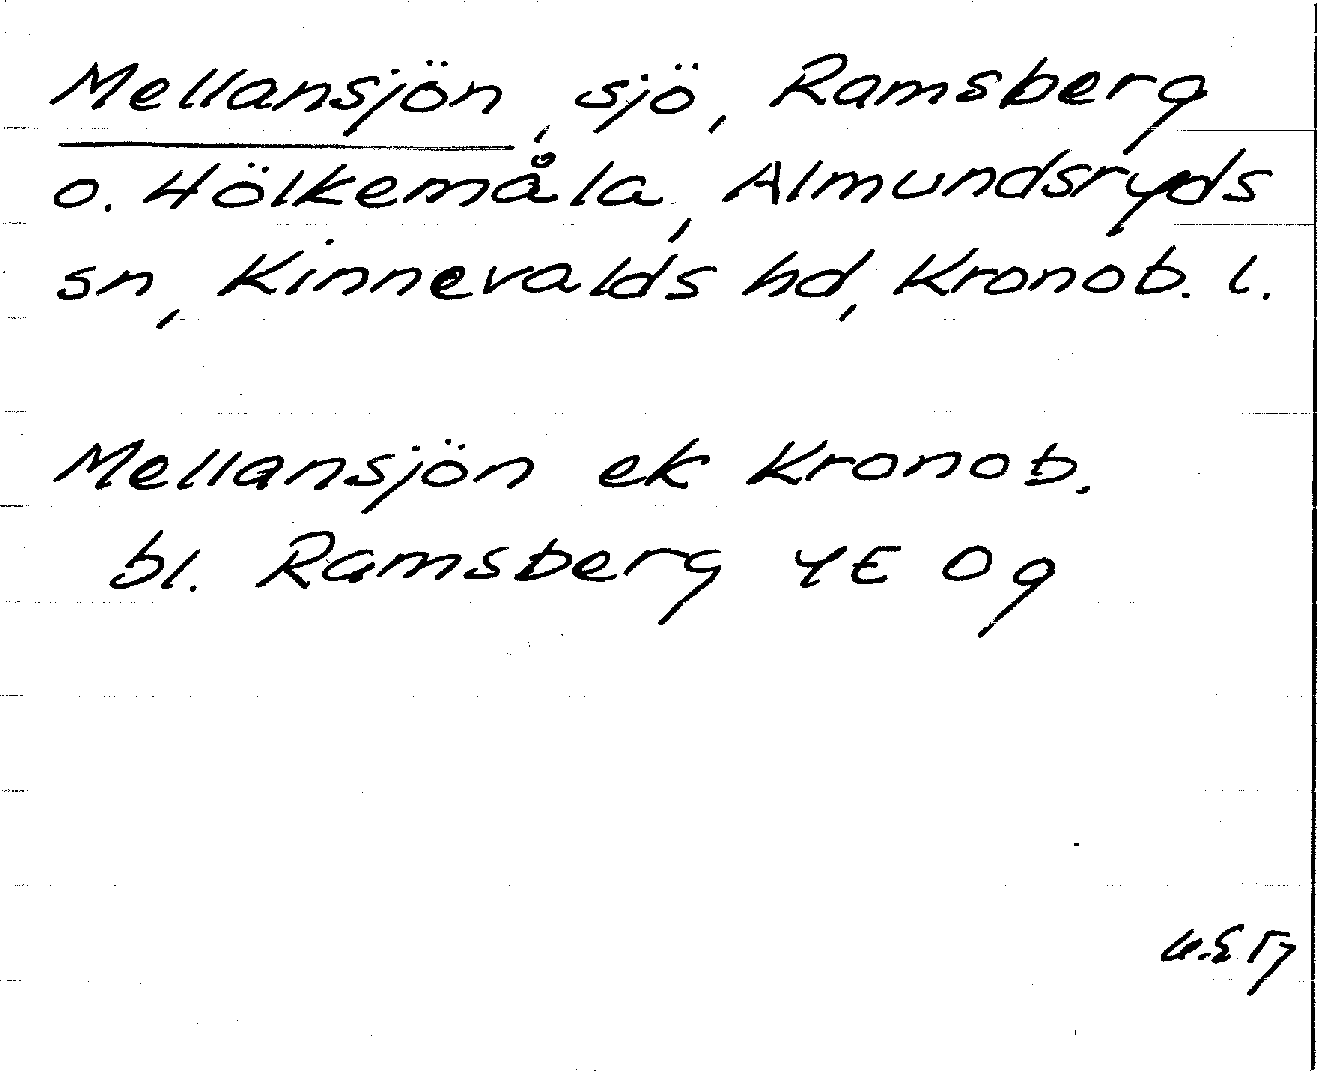 Mellansjön, sjö, Ramsberg
o. Hölkemåla, Almundsryds
sn, Kinnevalds hd, Kronob. l.
Mellansjön ek Kronob.
bl. Ramsberg 4E 0g